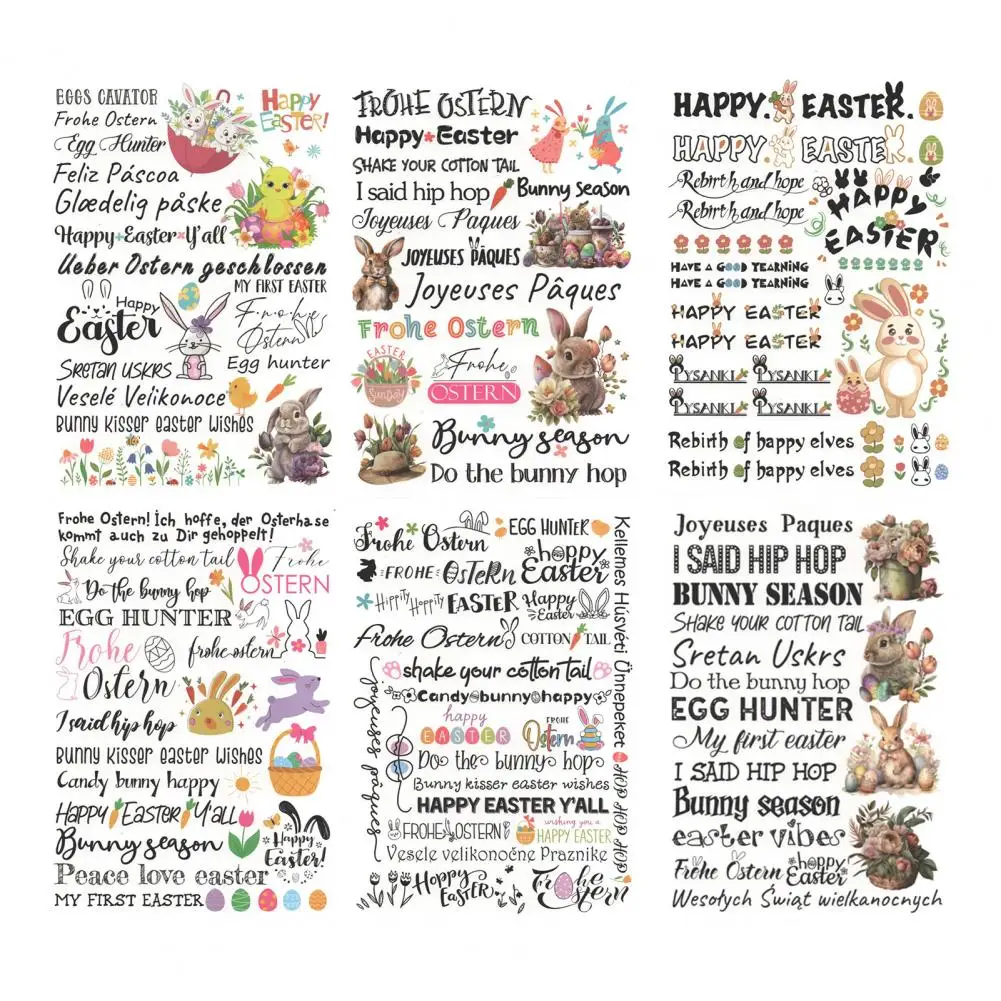 EGGS CAVATOR
Happy
EASTER!
Frohe Ostern
Egg Hunter
Feliz Páscoa
Glædelig påske
Happy Easter Y'all
Ueber Ostern geschlossen
MY FIRST EASTER
Happy
Easter
Frohe
Ostern
Sretan USKRS
Egg hunter
Veselé Velikonoce
Bunny kisser easter wishes
FROHE OSTERN
Happy Easter
SHAKE YOUR COTTON TAIL
I said hip hop
Bunny season
Joyeuses Paques
JOYEUSES PÂQUES
Joyeuses Pâques
Frohe Ostern
EASTER
SUNDAY
Frohe
OSTERN
Bunny season
Do the bunny hop
HAPPY. EASTER.
HAPPY EASTER
Rebirth and hope
Rebirth and hope
HAPPY
EASTER
HAVE A GOOD YEARNING
HAVE A GOOD YEARNING
HAPPY EASTER
HAPPY EASTER
PYSANKI PYSANKI
PYSANKI PYSANKI
Rebirth of happy elves
Rebirth of happy elves
Frohe Ostern! Ich hoffe, der Osterhase
kommt auch zu Dir gehoppelt!
Shake your cotton tail
Frohe
OSTERN
Do the bunny hop
EGG HUNTER
Frohe
Ostern
frohe ostern
I said hip hop
Bunny kisser easter wishes
Candy bunny happy
Happy Easter Y'all
Bunny season
Happy
Easter!
Peace love easter
MY FIRST EASTER
Frohe Ostern
EGG HUNTER
FROHE OSTERN
hoppy
Easter
Hippity Hoppity EASTER
Happy
Easter
Frohe Ostern
COTTON TAIL
shake your cotton tail
Candy bunny happy
happy
EASTER
FROHE
Ostern
Do the bunny hop
Bunny kisser easter wishes
HAPPY EASTER Y'ALL
FROHE OSTERN
wishing you a
HAPPY EASTER
Vesele velikonočne Praznike
Hoppy
EASTER
Frohe
Ostern
joyeuses pâques
Kellemes Húsvéti Ünnepeket HOP HOP HOP
Joyeuses Paques
I SAID HIP HOP
BUNNY SEASON
SHAKE YOUR COTTON TAIL
Sretan Uskrs
Do the bunny hop
EGG HUNTER
My first easter
I SAID HIP HOP
Bunny season
easter vibes
Frohe Ostern
hoppy
Easter
Wesołych Świąt wielkanocnych